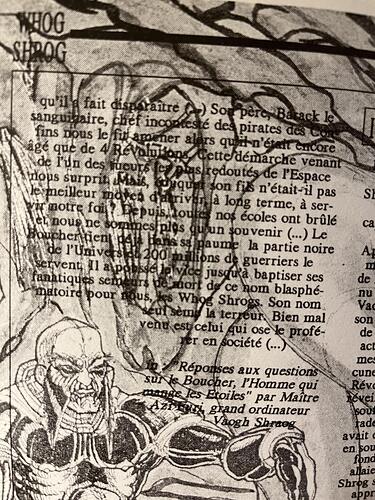 WHOG
SHROG
qu'il a fait disparaître (...) Son père, Barack le
sanguinaire, chef incontesté des pirates des Con-
fins nous le fit amener alors qu'il n'était encore
âgé que de 4 Révolutions. Cette démarche venant
de l'un des tueurs les plus redoutés de l'Espace
nous surprit. Mais, éduquer son fils n'était-il pas
le meilleur moyen d'arriver, à long terme, à ser-
vir notre foi ? Depuis, toutes nos écoles ont brûlé
et nous ne sommes plus qu'un souvenir (...) Le
Boucher tient déjà dans sa paume la partie noire
de l'Univers et 200 millions de guerriers le
servent. Il a poussé le vice jusqu'à baptiser ses
fanatiques semeurs de mort de ce nom blasphé-
matoire pour nous, les Whog Shrogs. Son nom
seul sème la terreur. Bien mal
venu est celui qui ose le profé-
rer en société (...)
in - "Réponses aux questions
sur le Boucher, l'Homme qui
mange les Etoiles" par Maître
grand ordinateur
Vaogh Shraog
Sh
ca
Ap
m
de
nu
Vao
son
de
act
mes
cune
Révo
réveil
sour
rade
avait
en sou
fond
allaie
Shrog s
appr